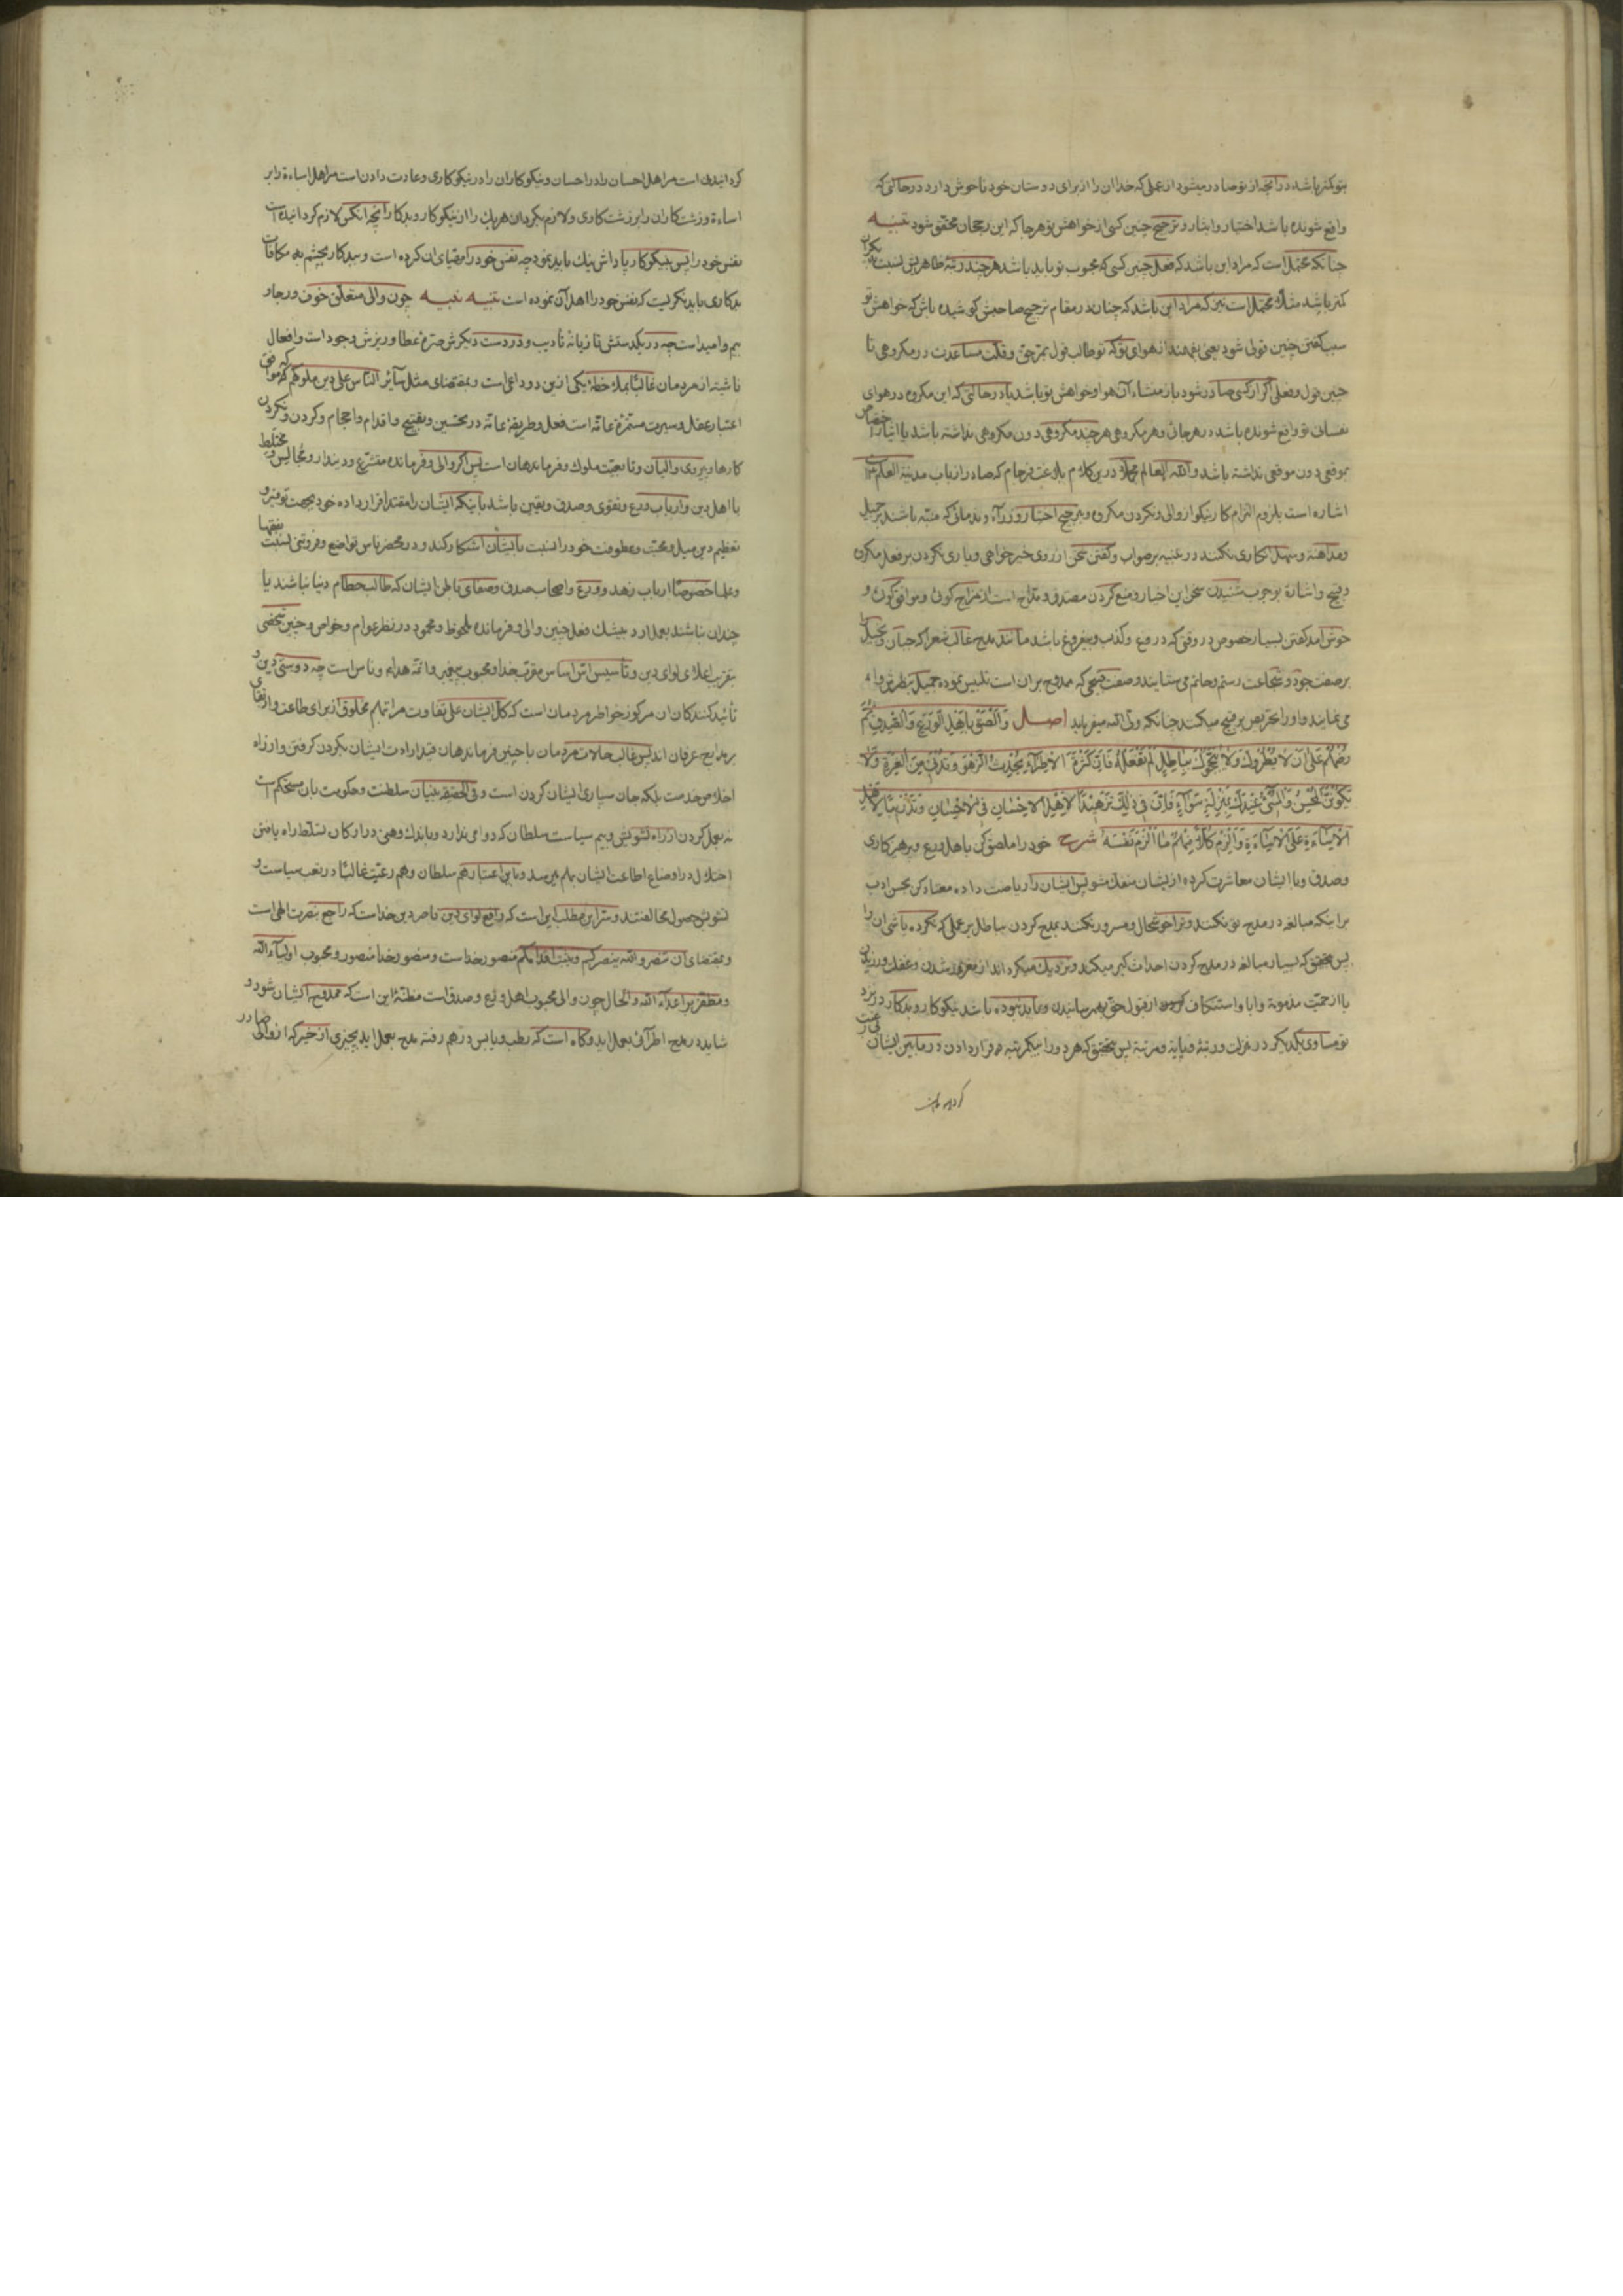 بتو کمتر باشد در آنچه از تو صادر میشود از عملی که خدا آن را از برای دوستان خود ناخوش دارد در حالتی که
واقع شونده باشد اختیار و ایثار و ترجیح چنین کسی از خواهش تو هر جا که این رجحان محقق شود تنبیه
چنانکه محتمل است که مراد این باشد که فعل چنین کسی که محبوب تو باید باشد هرچند رتبه ظاهریش نسبت بدیگران
کمتر باشد مثلا محتمل است نیز که مراد این باشد که چنان در مقام ترجیح صاحبش کوشیده باش که خواهش تو
سبب گفتن چنین قولی شود یعنی بفهمند از هوای تو که تو طالب قول بمرّ حق و قلت مساعدت در مکروهی تا
چنین قول و فعلی اگر از کسی صادر شود باز منشاء آن هوا و خواهش تو باشد یا در حالتی که این مکروه در هوای
نفسانی تو واقع شونده باشد در هر جائی و هر مکروهی هرچند مکروهی دون مکروهی نداشته باشد یا ایثار اختصاص
بموقعی دون موقعی نداشته باشد والله العالم درین کلام بلاغت فرجام که صادر از باب مدینة العلم است
اشاره است بلزوم التزام کار نیکو از والی و نکردن مکروه و بترجیح اختیار وزرآء و ندمائی که منبّه باشند بر جمیل
و مداهنه و سهل انگاری نکنند در تنبیه بر صواب و گفتن سخن از روی خیرخواهی و یاری نکردن بر فعل مکروه
و قبیح و اشاره بوجوب شنیدن سخن این اخیار و منع کردن مصدق و مداح است از مزاج گوئی و موافق گوئی و
خوش آمد گفتن بسیار خصوص در وقتی که دروغ و کذب و بیفروغ باشد مانند مدح غالب شعرا که جبان و بخیل را
بر صفت جود و شجاعت رستم و حاتم می ستایند و صفت قبیحی که ممدوح بر آن است تلبیس نموده جمیل بنظرش وا
می نمایند و او را تحریص بر قبیح میکنند چنانکه ولی الله میفرماید اصل وَالْصَقْ بِاَهْلِ الْوَرَعِ وَالصِّدْقِ ثُمَّ
رُضْهُمْ عَلَى اَنْ لَا یُطْرُوكَ وَلَا یُبَجِّحُوكَ بِبَاطِلٍ لَمْ تَفْعَلْهُ فَاِنَّ كَثْرَةَ الْاِطْرَآءِ تُحْدِثُ الزَّهْوَ وَتُدْنِی مِنَ الْغِرَّةِ وَلَا
یَكُونَنَّ الْمُحْسِنُ وَالْمُسِیءُ عِنْدَكَ بِمَنْزِلَةٍ سَوَآءٍ فَاِنَّ فِی ذٰلِكَ تَزْهِیدًا لِاَهْلِ الْاِحْسَانِ فِی الْاِحْسَانِ وَتَدْرِیبًا لِاَهْلِ
الْاِسَآءَةِ عَلَى الْاِسَآءَةِ وَاَلْزِمْ كُلًّا مِنْهُمْ مَا اَلْزَمَ نَفْسَهُ شرح خود را ملصق کن باهل ورع و پرهیزکاری
و صدق و با ایشان معاشرت کرده از ایشان منفک مشو پس ایشان را ریاضت داده معتاد کن بحسن ادب
بر اینکه مبالغه در مدح تو نکنند و ترا خوشحال و مسرور نکنند بمدح کردن بباطل بر عملی که نکرده باشی آن را
پس بتحقیق که بسیار مبالغه در مدح کردن احداث کبر میکند و نزدیک میگرداند از مغرور شدن و غفلت ورزیدن
یا از حمیت مذمومه و ابا و استنکاف کردن از قبول حق بهم رسانیدن و نباید بوده باشد نیکوکار و بدکار در نزد
تو مساوی یکدیگر در منزلت و رتبه و پایه و مرتبه پس بتحقیق که هر دو را بیکمرتبه قرار دادن در مابین ایشان بی رغبت
گردانیدن
گردانیدن است مر اهل احسان را در احسان و نیکوکاران را در نیکوکاری و عادت دادن است مر اهل اساءة را بر
اساءة و زشتکاران را بر زشتکاری و لازم بگردان هر یک را از نیکوکار و بدکار آنچه آنکس لازم گردانیده است
نفس خود را پس نیکوکار پاداش نیک باید نمود چه نفس خود را مقتضای آن کرده است و ببدکار بچشم بد مکافات
بدکاری باید نگریست که نفس خود را اهل آن نموده است تتبیه تنبیه چون والی متعلق خوف و رجاء و
بیم و امید است چه در یکدستش تازیانه تأدیب و در دست دیگرش صرّه عطا و ریزش وجود است و افعال
ناشیه از مردمان غالبا بملاحظه یکی ازین دو داعی است و بمقتضای مثل سائر الناس علی دین ملوکهم که موافق
اعتبار عقل و سیرت مستمره عامّه است فعل و طریقه عامّه در تحسین و تقبیح و اقدام و احجام و کردن و نکردن
کارها و پیروی والیان و تابعیت ملوک و فرماندهان است پس اگر والی و فرمانده متشرع و دیندار و مجالس و مختلط
با اهل دین و ارباب ورع و تقوی و صدق و یقین باشد باینکه ایشان را مقتدا قرار داده خود بجهت توقیر و
تعظیم دین میل و محبت و عطوفت خود را نسبت بایشان آشکار کند و در محضر ناس تواضع و فروتنی نسبت بفقها
و علما خصوصا ارباب زهد و ورع و اصحاب صدق و صفای باطن ایشان که طالب حطام دنیا نباشند یا
چندان نباشند بعمل آرد بیشک فعل چنین والی و فرمانده ملحوظ و محمود در نظر عوام و خواص و چنین شخصی
بتقریب اعلای لوای دین و تأسیس اس اساس مقرب خدا و محبوب پیغمبر و ائمه هدا و ناس است چه دوستی دین و
تأئید کنندگان آن مرکوز خواطر مردمان است که کل ایشان علی تفاوت مراتبهم مخلوق از برای طاعت و ارتقای
بمدارج عرفان اند پس غالب حالات مردمان با چنین فرماندهان قید ارادت ایشان بگردن گرفتن و از راه
اخلاص خدمت بلکه جان سپاری ایشان کردن است و فی الحقیقه بنیان سلطنت و حکومت بان مستحکم است
نه بعمل کردن از راه تشویش و بیم سیاست سلطان که دوامی ندارد و باندک وهنی در ارکان تسلط راه یافتن
اختلال در اوضاع اطاعت ایشان بهم میرسد و باین اعتبار هم سلطان و هم رعیت غالبا در تعب سیاست و
تشویش حصول مخالفتند و سرّ این مطلب این است که رافع لوای دین ناصر دین خداست که راجع بنصرت الهی است
و بمقتضای ان تنصروا الله ینصرکم و یثبت اقدامکم منصور خداست و منصور خدا منصور و محبوب اولیآء الله
و مظفر بر اعدآء الله و الحال چون والی محبوب اهل ورع و صدق است مظنّه این است که ممدوح ایشان شود و
شاید در مدح اطرآئی بعمل آید و گاه است که رطب و یابس درهم رفته مدح بعمل آید بچیزی از خیر که از والی صادر